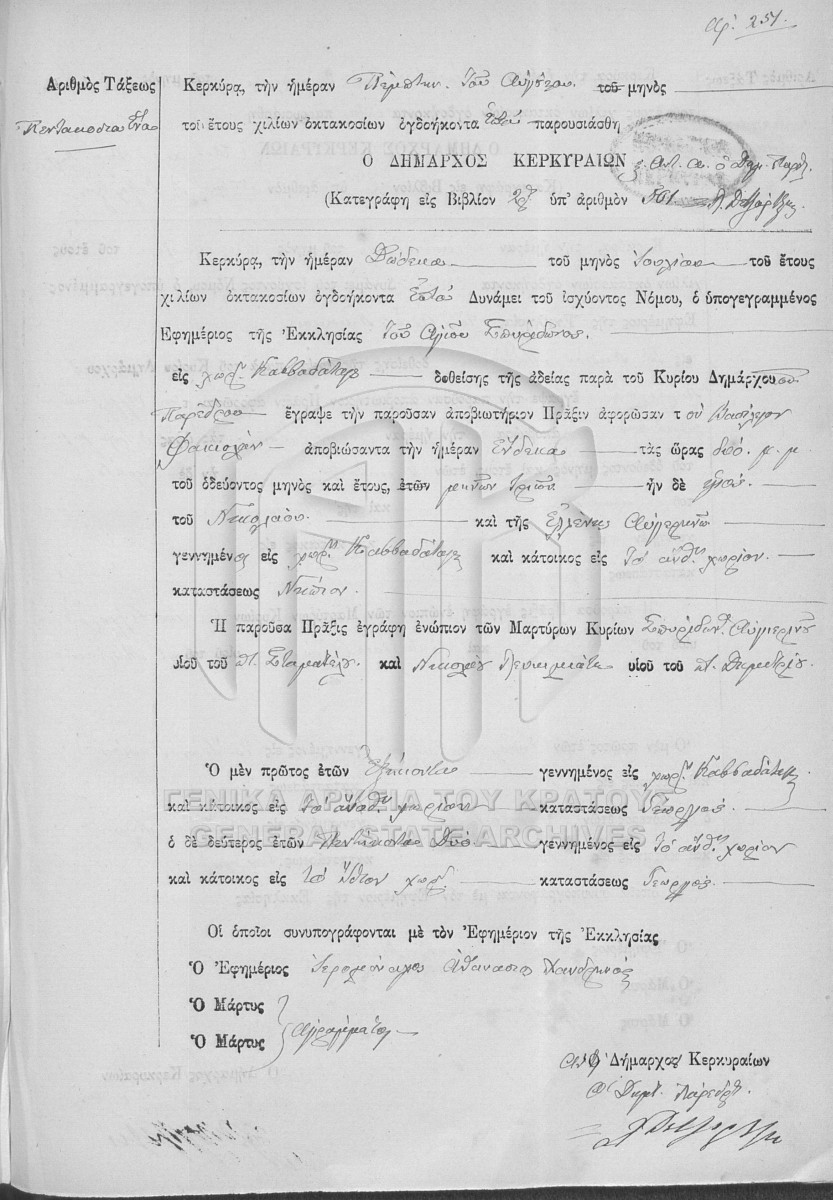 Ἀρ. 251.
Ἀριθμὸς Τάξεως
Πεντακόσια Ἕνα
Κερκύρᾳ, τὴν ἡμέραν Πέμπτην Τοῦ Αὐγούστου τοῦ μηνὸς
τοῦ ἔτους χιλίων ὀκτακοσίων ὀγδοήκοντα Ἑπτά παρουσιάσθη
Ο ΔΗΜΑΡΧΟΣ ΚΕΡΚΥΡΑΙΩΝ ὁ Δημ. Πάρεδ.
(Κατεγράφη εἰς Βιβλίον 2ον ὑπ' ἀριθμὸν 501
Κερκύρᾳ, τὴν ἡμέραν Δώδεκα τοῦ μηνὸς Ἰουλίου τοῦ ἔτους
χιλίων ὀκτακοσίων ὀγδοήκοντα Ἑπτά Δυνάμει τοῦ ἰσχύοντος Νόμου, ὁ ὑπογεγραμμένος
Ἐφημέριος τῆς Ἐκκλησίας Τοῦ Ἁγίου Σπυρίδωνος.
εἰς χωρ. Καββαδάταις δοθείσης τῆς ἀδείας παρὰ τοῦ Κυρίου Δημάρχου
Παρέδρου ἔγραψε τὴν παροῦσαν ἀποβιωτήριον Πρᾶξιν ἀφορῶσαν τ οὐ Βασίλειον
ἀποβιώσαντα τὴν ἡμέραν Ἕνδεκα τὰς ὥρας δύο μ. μ.
τοῦ ὁδεύοντος μηνὸς καὶ ἔτους, ἐτῶν μηνῶν τριῶν ἦν δὲ υἱὸς
τοῦ Νικολάου καὶ τῆς Ἑλένης Αὐγερινοῦ
γεννημένοι εἰς χωρ. Καββαδάταις καὶ κάτοικος εἰς Τὸ ἄνωθ. χωρίον
καταστάσεως Νήπιον
Ἡ παροῦσα Πρᾶξις ἐγράφη ἐνώπιον τῶν Μαρτύρων Κυρίων Σπυρίδων. Αὐγερινοῦ
υἱοῦ τοῦ π. Σταματέλου καὶ Νικολάου υἱοῦ τοῦ π. Δημητρίου.
Ὁ μὲν πρῶτος ἐτῶν Ἑξήκοντα γεννημένος εἰς χωρ. Καββαδάταις
καὶ κάτοικος εἰς Τὸ ἄνωθ. χωρίον καταστάσεως Γεωργός
ὁ δὲ δεύτερος ἐτῶν Πεντήκοντα Δύο γεννημένος εἰς Τὸ ἄνωθ. χωρίον
καὶ κάτοικος εἰς Τὸ ἴδιον χωρ. καταστάσεως Γεωργός
Οἱ ὁποῖοι συνυπογράφονται μὲ τὸν Ἐφημέριον τῆς Ἐκκλησίας
Ὁ Ἐφημέριος Ἱερομόναχος Ἀθανάσιος Χανδρινός
Ὁ Μάρτυς
Ὁ Μάρτυς
Ἀγράμματοι
Ὁ Δήμαρχος Κερκυραίων
Ὁ Δημ. Πάρεδρ.
ΓΕΝΙΚΑ ΑΡΧΕΙΑ ΤΟΥ ΚΡΑΤΟΥΣ
GENERAL STATE ARCHIVES